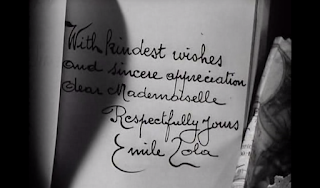 With kindest wishes
and sincere appreciation
dear Mademoiselle
Respectfully yours
Emile Zola